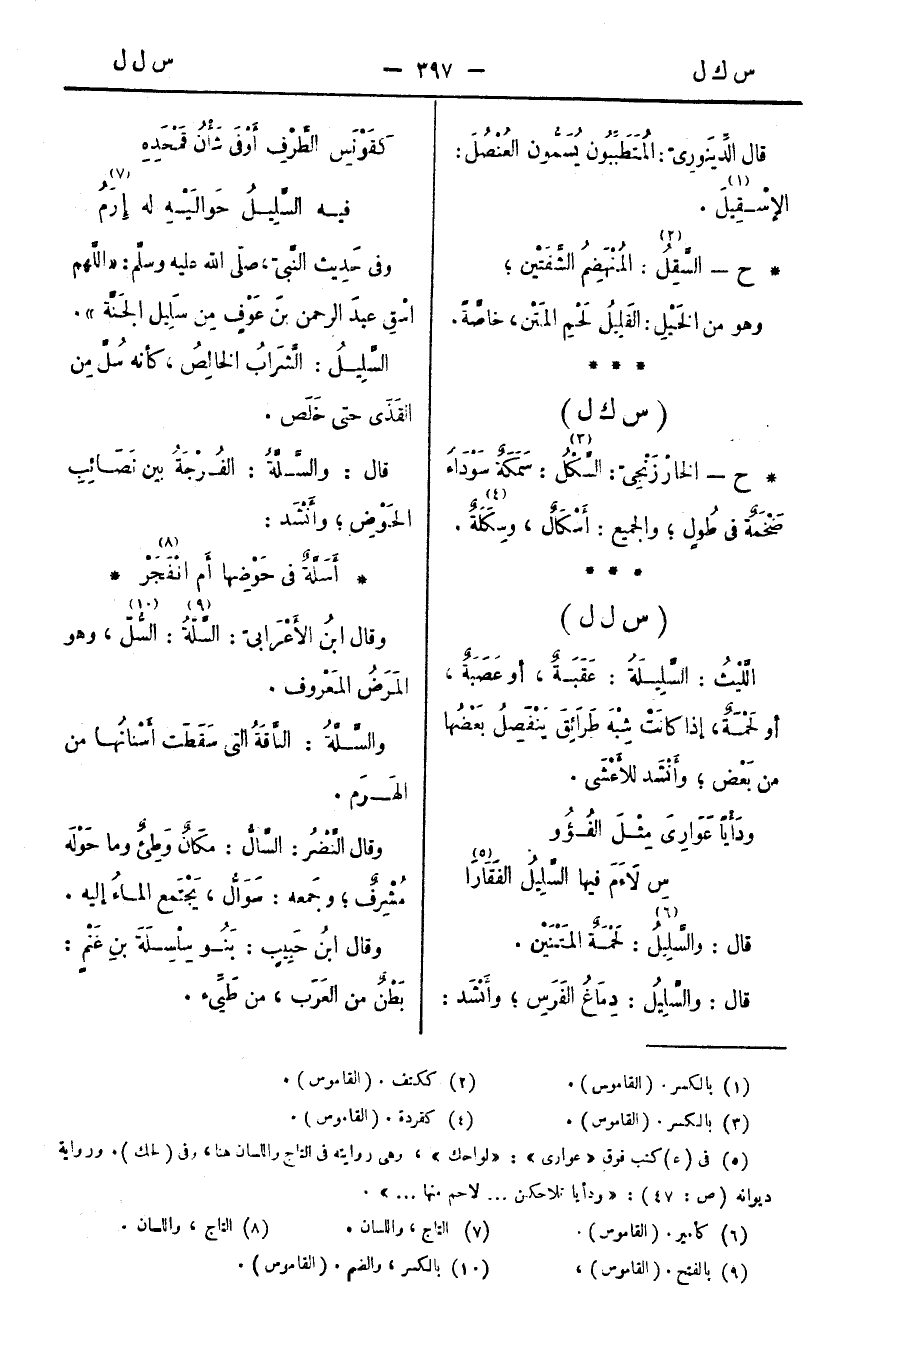 س ك ل
— ٣٩٧ —
س ل ل
قال الدِّينوريّ: المُتَطَبِّبُون يُسَمُّون العُنْصُلَ:
(١)
الإسْـقِيلَ .
(٢)
* ح — السَّقِلُ : المُنْهَضِمُ الشَّفَتَيْن ؛
وهو من الخَيْلِ: القَلِيلُ لَحْمِ المَتْنِ، خاصَّةً.
* * *
( س ك ل )
(٣)
* ح — الخارْزَنْجِيّ: السِّكْلُ : سَمَكَةٌ سَوْدَاءُ
(٤)
ضَخْمَةٌ فى طُولٍ ؛ والجميع : أَسْكَالٌ ، وسِكَلَةٌ .
* * *
( س ل ل )
اللَّيْثُ : السَّلِيـلَةُ : عَقَبَـةٌ ، أو عَصَبَةٌ ،
أو لَحْمَةٌ، إذا كانَتْ شِبْهَ طَرَائِقَ يَنْفَصِلُ بَعْضُها
من بَعْض ؛ وأَنْشَد للأَعْشَى .
ودَأْيًا عَوَارِىَ مِثْـلَ الفُـؤُو
(٥)
سِ لَاءَمَ فيها السَّلِيلُ الفَقَارَا
(٦)
قال : والسَّلِيلُ : لَحْمَةُ المَتْنَيْنِ .
قال : والسَّلِيلُ : دِمَاغُ الفَرَسِ ؛ وأَنْشَد :
كَقَوْنَسِ الطَّرْفِ أَوْفَى شَأْنُ قَمْحَدِهِ
(٧)
فيـه السَّلِيـلُ حَوَالَيْـهِ له إرَمُ
وفى حَدِيث النَّبيّ، صلّى الله عليه وسلّم: «اللَّهم
اسْقِ عبدَ الرحمن بنَ عَوْفٍ مِن سَلِيلِ الجَنَّة ».
السَّلِيـلُ : الشَّرَابُ الخالِصُ ، كأنه سُلَّ مِن
القَذَى حتى خَلَص .
قال : والسَّـلَّةُ : الفُـرْجَةُ بين نَصَائِبِ
الحَوْضِ ؛ وأَنْشَد :
(٨)
* أَسَلَّةٌ فى حَوْضِها أم انْفَجَرْ *
(٩) (١٠)
وقال ابنُ الأَعْرابىّ : السَّلّةُ : السُّلّ ، وهو
المَرَضُ المَعْروف .
والسَّـلَّةُ : النَّاقَةُ التى سَقَطَت أَسْنانُهـا من
الهَـرَمِ .
وقال النَّضْرُ : السَّالُّ : مَكَانٌ وَطِئٌ وما حَوْلَه
مُشْرِفٌ ؛ وجَمعه : سَوَالُّ ، يَجْتَمِع المـاءُ إليه .
وقال ابنُ حَبِيبٍ : بَنُـو سِلْسِـلَةَ بنِ غَنْمٍ :
بَطْنٌ من العَرَب ، من طَيِّيء .
(١) بالكسر . (القاموس) .
(٢) ككتف . (القاموس) .
(٣) بالكسر . (القاموس) .
(٤) كقردة . (القاموس) .
(٥) فى (ء) كتب فوق « عوارى » : «لواحك» ، وهى روايته فى التاج واللسان هنا ، وفى ( لحك ) . ورواية
ديوانه (ص : ٤٧) : « ودأيا تلاحكن ... لاحم منها ... » .
(٦) كأمير . (القاموس) .
(٧) التاج ، واللسان .
(٨) التاج ، واللسان .
(٩) بالفتح . (القاموس) ،
(١٠) بالكسر ، والضم . (القاموس) .